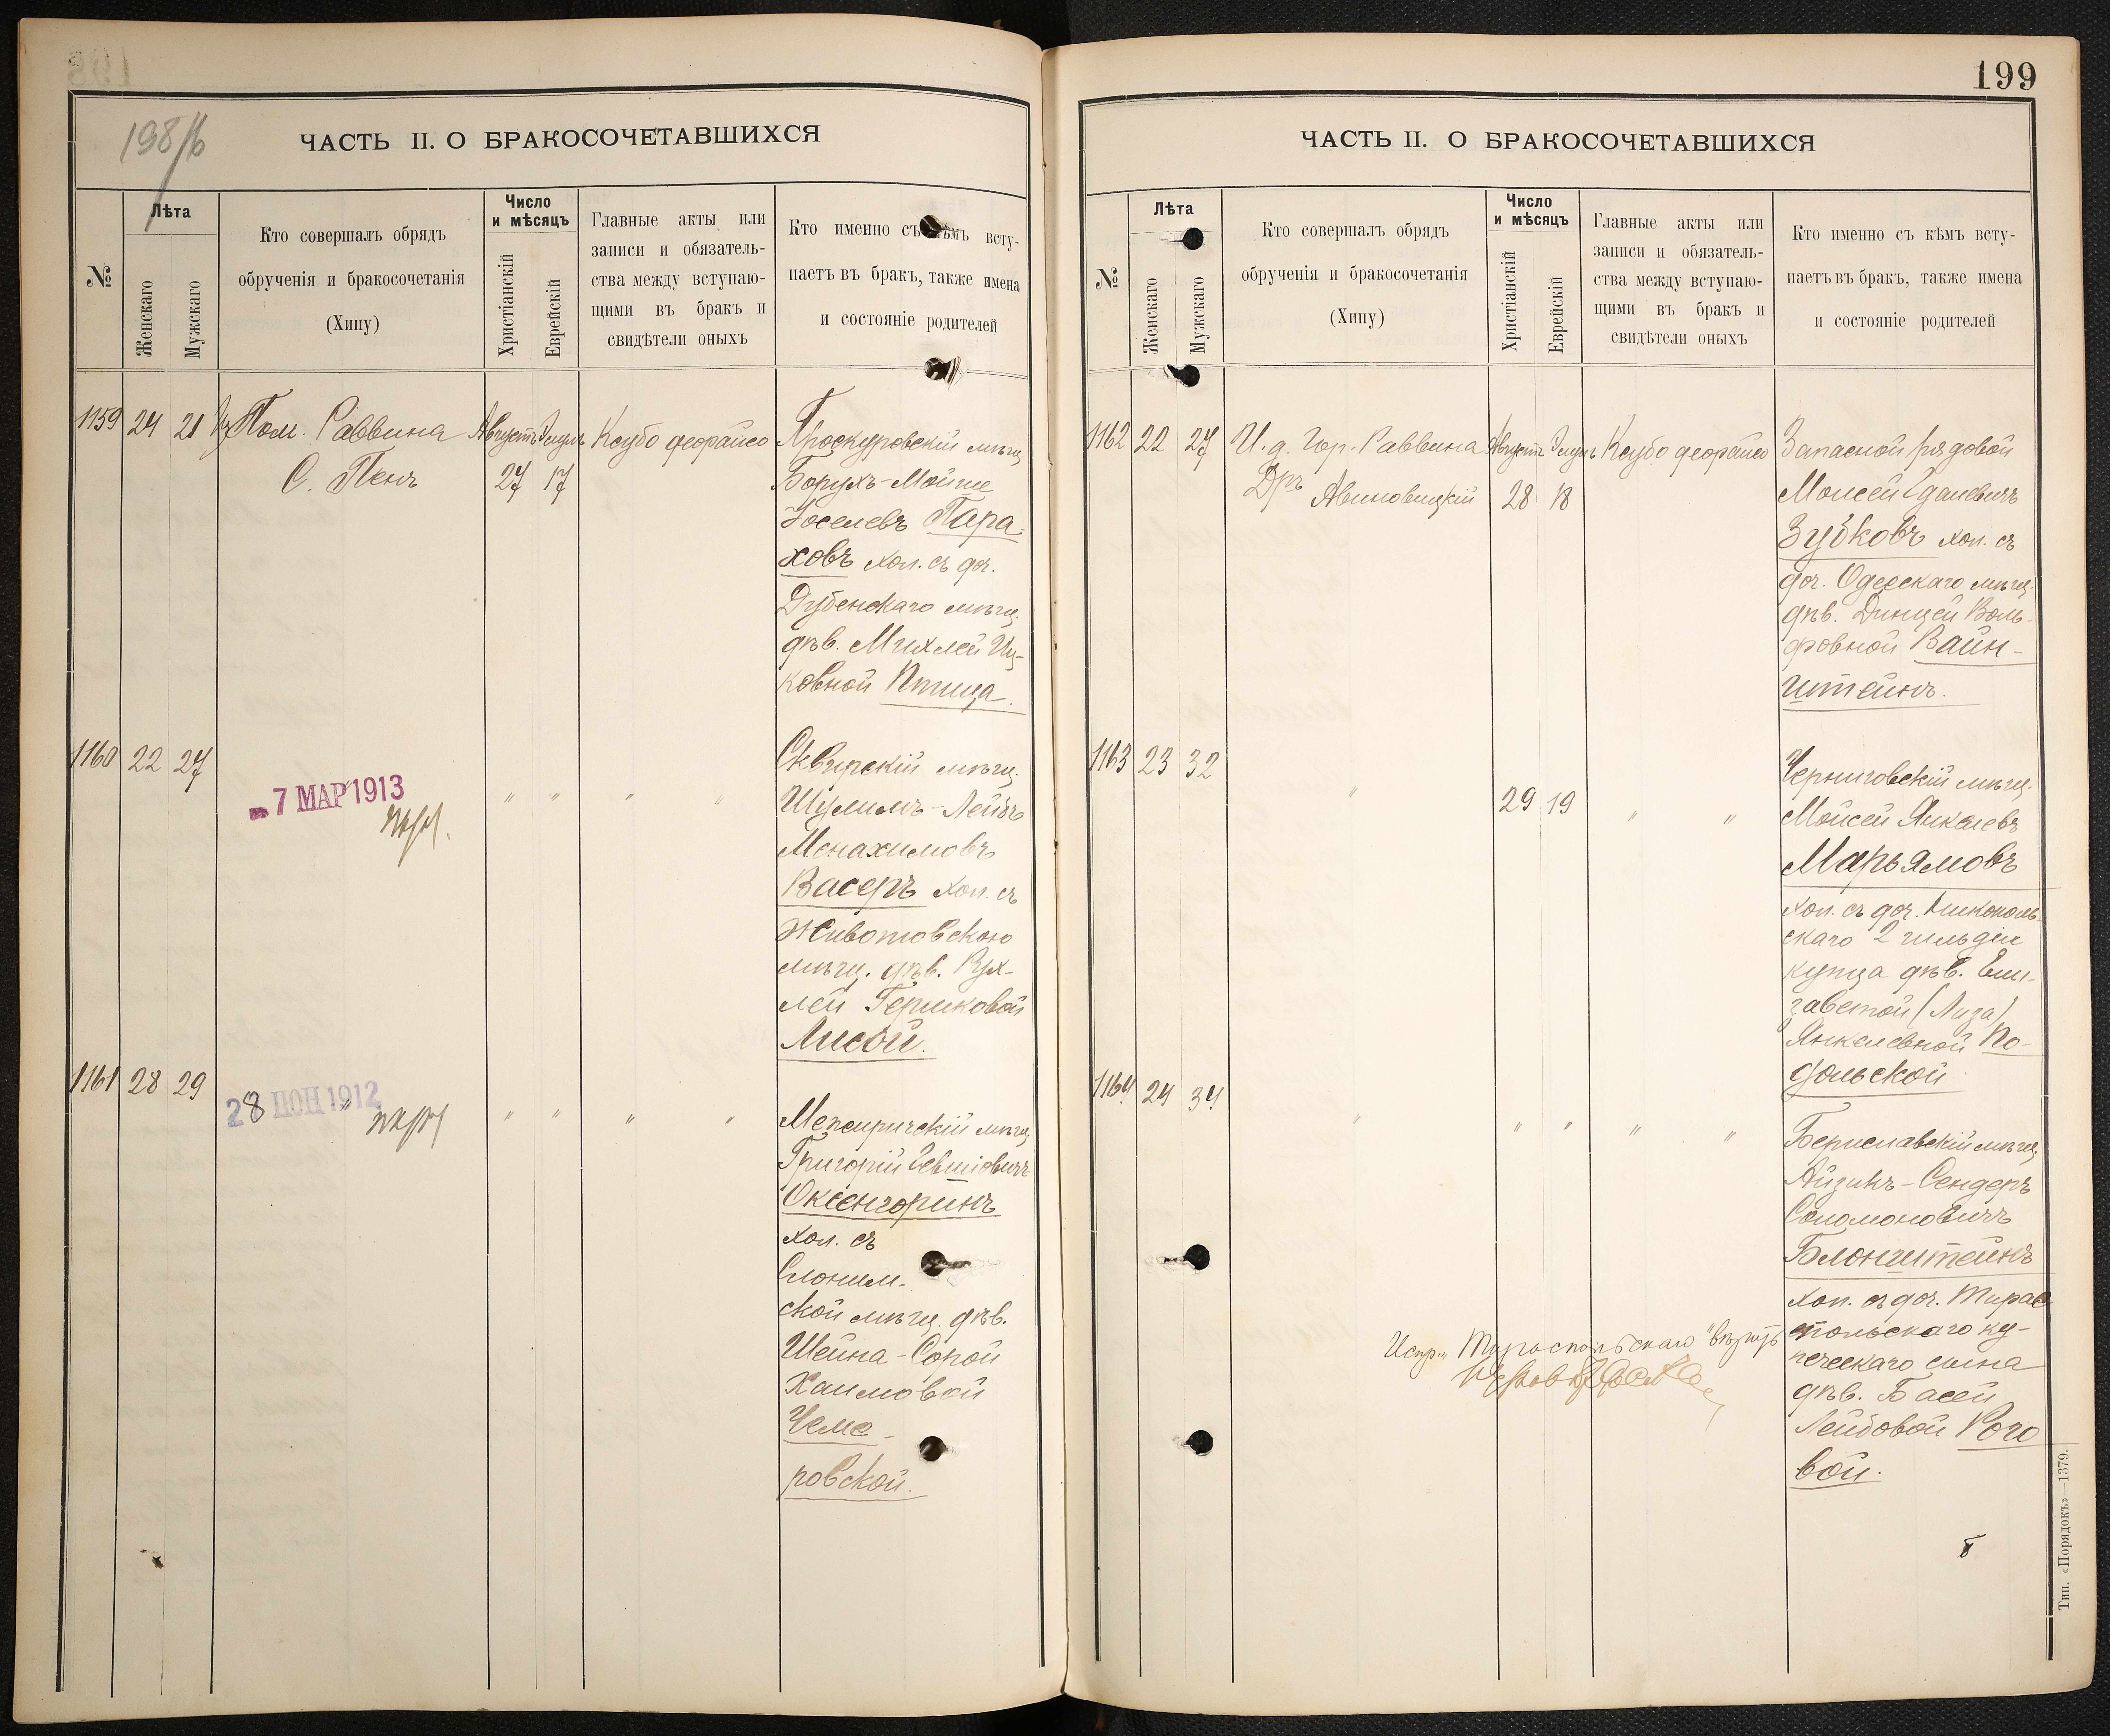 198/б
ЧАСТЬ II. О БРАКОСОЧЕТАВШИХСЯ
№
Лѣта
Женскаго
Мужскаго
Кто совершалъ обрядъ
обрученія и бракосочетанія
(Хипу)
Число
и мѣсяцъ
Христіанскій
Еврейскій
Главные акты или
записи и обязатель-
ства между вступаю-
щими въ бракъ и
свидѣтели оныхъ
Кто именно съ кѣмъ всту-
паетъ въ бракъ, также имена
и состояніе родителей
1159 24 21
Пом. Раввина
С. Пенъ
Августъ Элулъ
27 17
Ксубо деорайсо
Проскуровскій мѣщ.
Борухъ-Мойше
Іоселевъ Пара-
ховъ хол. съ доч.
Дубенскаго мѣщ.
дѣв. Михлей Иц-
ковной Птица.
1160 22 27
7 МАР 1913
" " " "
Сквирскій мѣщ.
Шулимъ-Лейбъ
Менахимовъ
Васеръ хол. съ
Животовскою
мѣщ. дѣв. Рух-
лей Гершковой
Лисой.
1161 28 29
28 ІЮН 1912
" " " " "
Межиричскій мѣщ.
Григорій Евшіовичъ
Оксенгоринъ
хол. съ
Слоним-
ской мѣщ. дѣв.
Шейна-Сорой
Хаимовой
Чеме-
ровской.
199
ЧАСТЬ II. О БРАКОСОЧЕТАВШИХСЯ
№
Лѣта
Женскаго
Мужскаго
Кто совершалъ обрядъ
обрученія и бракосочетанія
(Хипу)
Число
и мѣсяцъ
Христіанскій
Еврейскій
Главные акты или
записи и обязатель-
ства между вступаю-
щими въ бракъ и
свидѣтели оныхъ
Кто именно съ кѣмъ всту-
паетъ въ бракъ, также имена
и состояніе родителей
1162 22 27
И. д. Гор. Раввина
Дръ Авиновицкій
Августъ Элулъ
28 18
Ксубо деорайсо
Запасной рядовой
Моисей
Зубковъ хол. съ
доч. Одесскаго мѣщ.
дѣв. Динцей Воль-
фовной Вайн-
штейнъ.
1163 23 32
"
29 19
" "
Черниговскій мѣщ.
Мойсей Янкелевъ
Марьямовъ
хол. съ доч. Никополь-
скаго 2 гильдіи
купца дѣв. Ели-
заветой (Лиза)
Янкелевной По-
дольской
1164 24 34
" " " " "
Бериславскій мѣщ.
Айзикъ-Сендеръ
Соломоновичъ
Блонштейнъ
хол. съ доч. Тирас-
польскаго ку-
печескаго сына
дѣв. Басей
Лейбовой Рого
вой.
Испр. "Тираспольскаго" вѣрить
Тип. «Порядокъ»—1379.